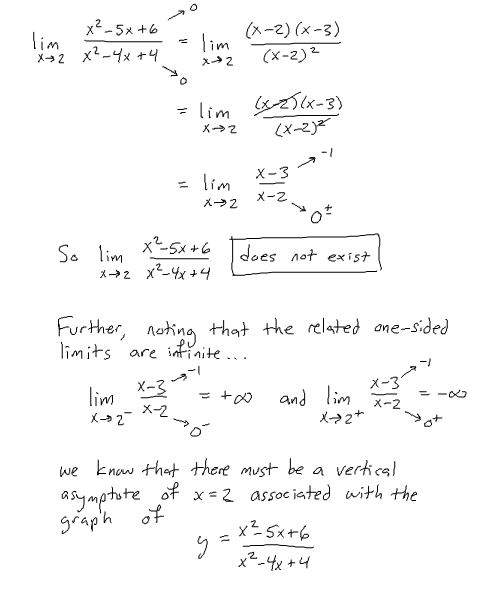 lim x→2 (x²-5x+6)/(x²-4x+4) →0 →0 = lim x→2 (x-2)(x-3)/(x-2)²
= lim x→2 (x-2)(x-3)/(x-2)²
= lim x→2 (x-3)/(x-2) →-1 →0±
So lim x→2 (x²-5x+6)/(x²-4x+4) does not exist
Further, noting that the related one-sided
limits are infinite...
lim x→2⁻ (x-3)/(x-2) →-1 →0⁻ = +∞ and lim x→2⁺ (x-3)/(x-2) →-1 →0⁺ = -∞
we know that there must be a vertical
asymptote of x=2 associated with the
graph of
y = (x²-5x+6)/(x²-4x+4)